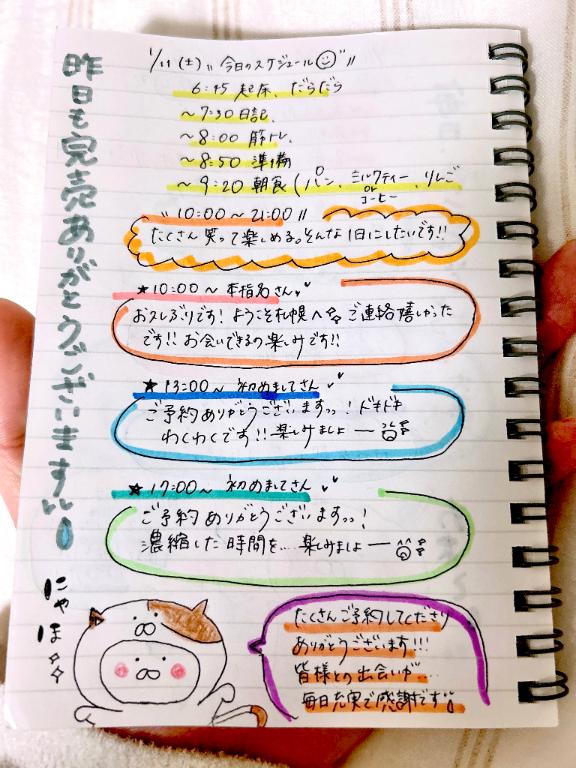 1/11(土)〃今日のスケジュール〃
6:45 起床、だらだら
~7:30 日記、
~8:00 筋トレ、
~8:50 準備
~9:20 朝食(パン、ミルクティー or コーヒー、りんご
〃10:00~21:00〃
たくさん笑って楽しめる。そんな1日にしたいです!!
★10:00~本指名さん
お久しぶりです!ようこそ札幌へ ご連絡嬉しかった
です!!お会いできるの楽しみです!!
★13:00~初めましてさん
ご予約ありがとうございますっっ!ドキドキ
わくわくです!!楽しみましょー
★17:00~初めましてさん
ご予約ありがとうございますっっ!
濃縮した時間を…楽しみましょー
たくさんご予約してくださり
ありがとうございます!!!
皆様との出会いが…
毎日充実で感謝です
昨日も完売ありがとうございます
にゃほ